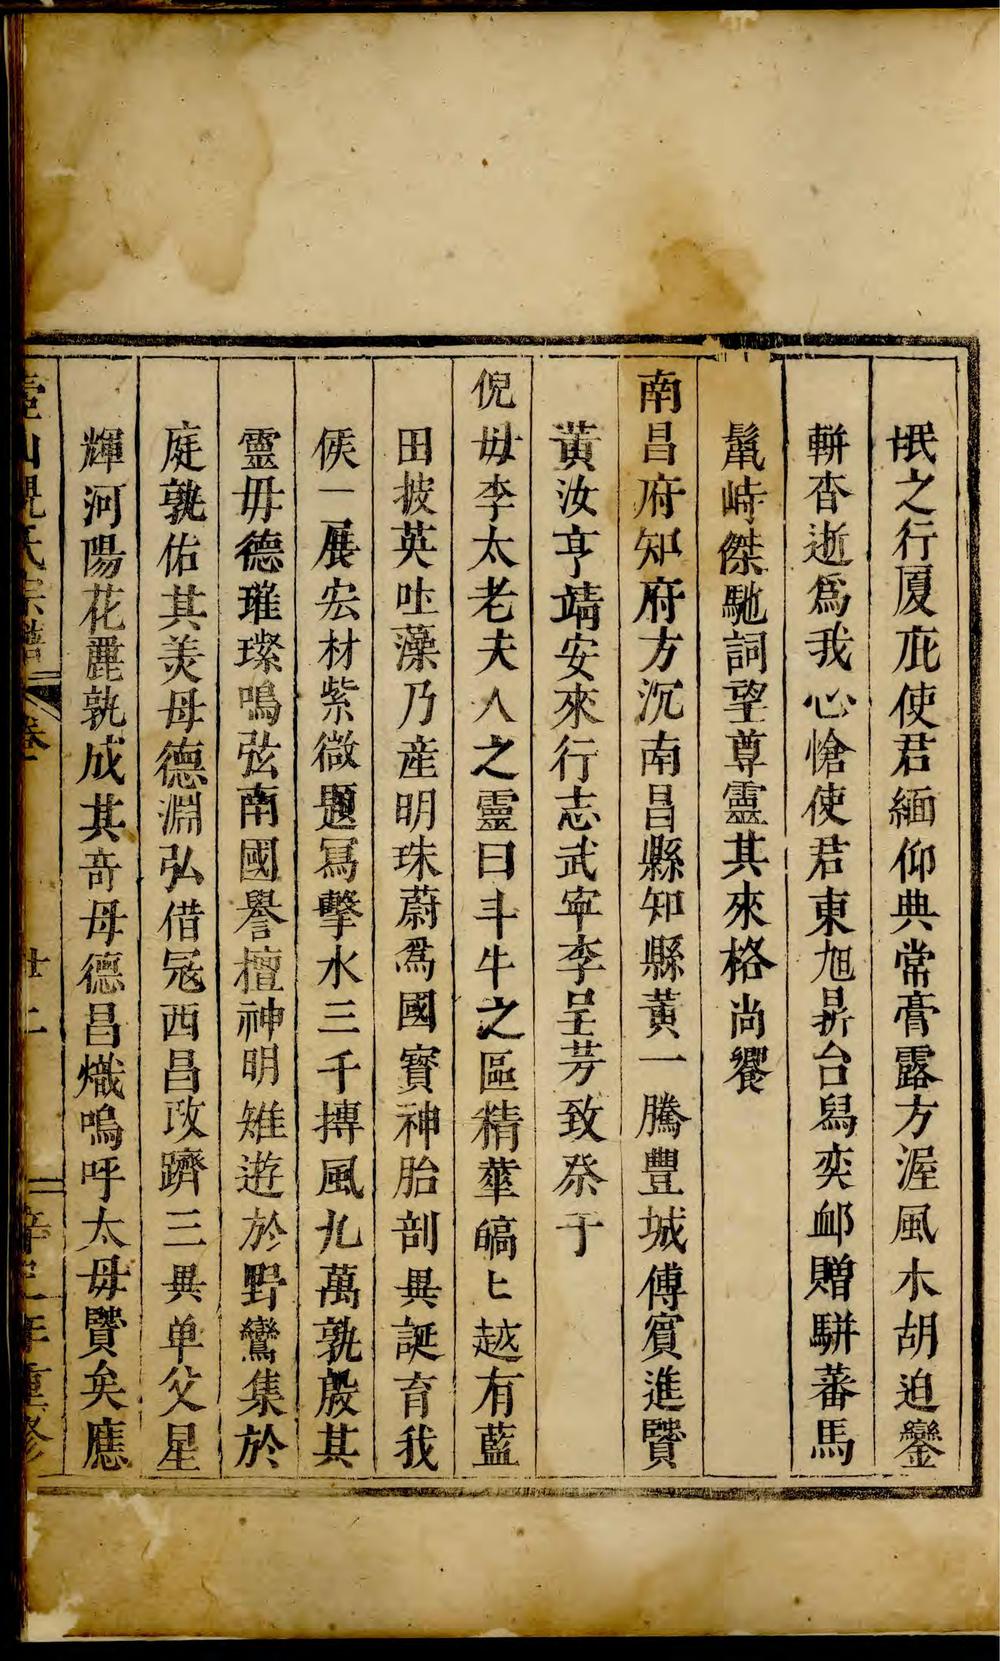 氓之行厦庇使君緬仰典常膏露方渥風木胡迫鑾
輧杳逝爲我心愴使君東旭昇台舄奕邮贈駢蕃馬
鬛峙傑馳詞望尊靈其來格尚饗
南昌府知府方沉南昌縣知縣黃一騰豐城傅賓進賢
黃汝亨靖安來行志武寜李呈芳致祭于
倪母李太老夫人之靈曰斗牛之區精華皜匕越有藍
田披英吐藻乃產明珠蔚爲國寶神胎剖異誕育我
侯一展宏材紫微題寫擊水三千摶風九萬孰殷其
靈毋德璀璨鳴弦南國譽檀神明雉遊於野鸞集於
庭孰佑其羙母德淵弘借冦西昌政躋三異单父星
輝河陽花麗孰成其竒母德昌熾嗚呼太毋賢矣應
山倪氏宗譜 卷 廿二 辛 年重修